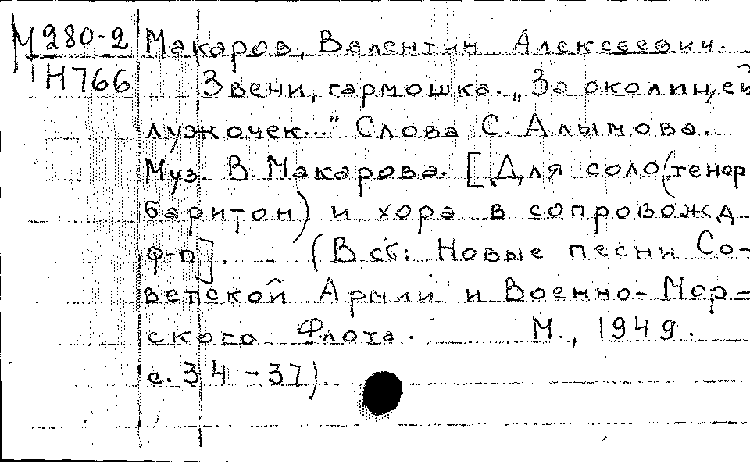 М 280-2 Макаров, Валентин Алексеевич.
Н766 Звени, гармошка. „За околицей
лужочек..." Слова С. Алымова.
Муз. В. Макарова. [Для соло (тенор
баритон) и хора в сопровожд.
ф-п]. (В сб: Новые песни Со-
ветской Армии и Военно-Мор-
ского Флота. М., 1949.
с. 34-37)